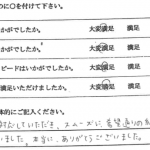 のに○を付けて下さい。
かがでしたか。 大変満足 満足
かがでしたか。 大変満足 満足
ピードはいかがでしたか。 大変満足 満足
満足いただけましたか。 大変満足 満足
体的にご記入ください。
対応していただき、スムーズに、希望通りの
ました。本当に、ありがとうございました。